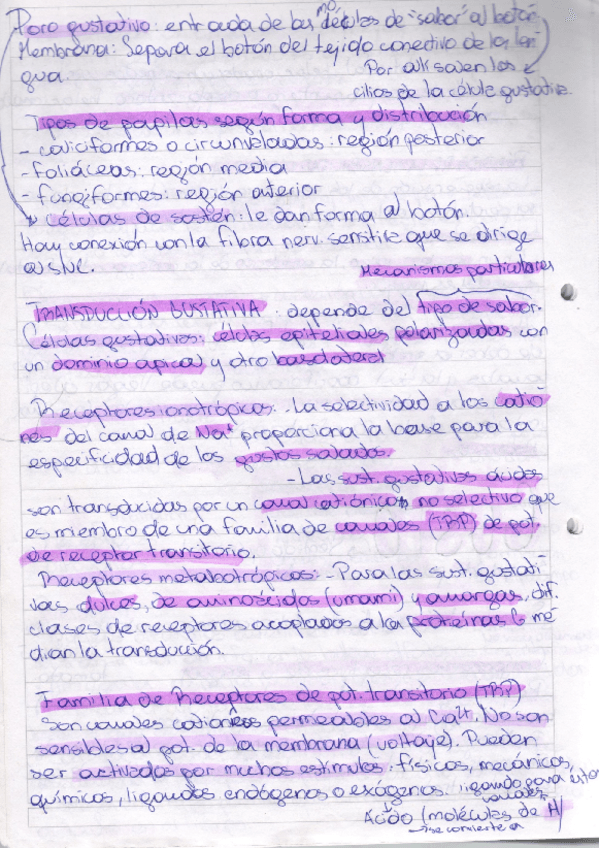 Poro gustativo: entrada de las moléculas de "sabor" al botón.
Membrana: Separa el botón del tejido conectivo de la len-
gua.
Por allí salen los
cilios de la célula gustativa.
Tipos de papilas según forma y distribución
- caliciformes o circunvaladas: región posterior
- foliáceas: región media
- fungiformes: región anterior
Células de sostén: le dan forma al botón.
Hay conexión con la fibra nerv. sensitiva que se dirige
al SNC.
Mecanismos particulares
TRANSDUCCIÓN GUSTATIVA: depende del tipo de sabor.
Células gustativas: células epiteliales polarizadas con
un dominio apical y otro basolateral
Receptores ionotrópicos: - La selectividad a los catio-
nes del canal de Na+ proporciona la base para la
especificidad de los gustos salados.
- Las sust. gustativas ácidas
son transducidas por un canal catiónico no selectivo que
es miembro de una familia de canales (TRP) de pot.
de receptor transitorio.
Receptores metabotrópicos: - Para las sust. gustati-
vas dulces, de aminoácidos (umami) y amargas, dif.
clases de receptores acoplados a las proteínas G me-
dian la transducción.
Familia de Receptores de pot. transitorio (TRP)
Son canales catiónicos permeables al Ca2+. No son
sensibles al pot. de la membrana (voltaje). Pueden
ser activados por muchos estímulos: físicos, mecánicos,
químicos, ligandos endógenos o exógenos.
ligando para estos
canales
Ácido (moléculas de H)
→ se convierte en